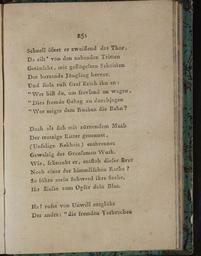 251
Schnell öfnet er zweifelnd das Thor,
Da eilt' von den nahenden Tritten
Getäuscht, mit geflügelten Schritten
Der harrende Jüngling hervor.
Und stolz ruft Graf Erich ihn an:
"Wer bist du, um frevelnd zu wagen,
"Dies fremde Gehäg zu durchjagen
"Wer zeigte dem Buben die Bahn?
Doch als sich mit zürnendem Muth
Der muthige Ritter genennet,
(Unselige Kekheit!) entbrennet
Gewaltig des Grausamen Wuth.
Wie, schnaubt er, entfloh dieser Brut
Noch einer der himmlischen Rache?
So führe mein Schwerd ihre Sache,
Ihr fließe zum Opfer dein Blut.
Ha! rufte von Unwill entglüht
Der andre: "die fremden Verbrechen